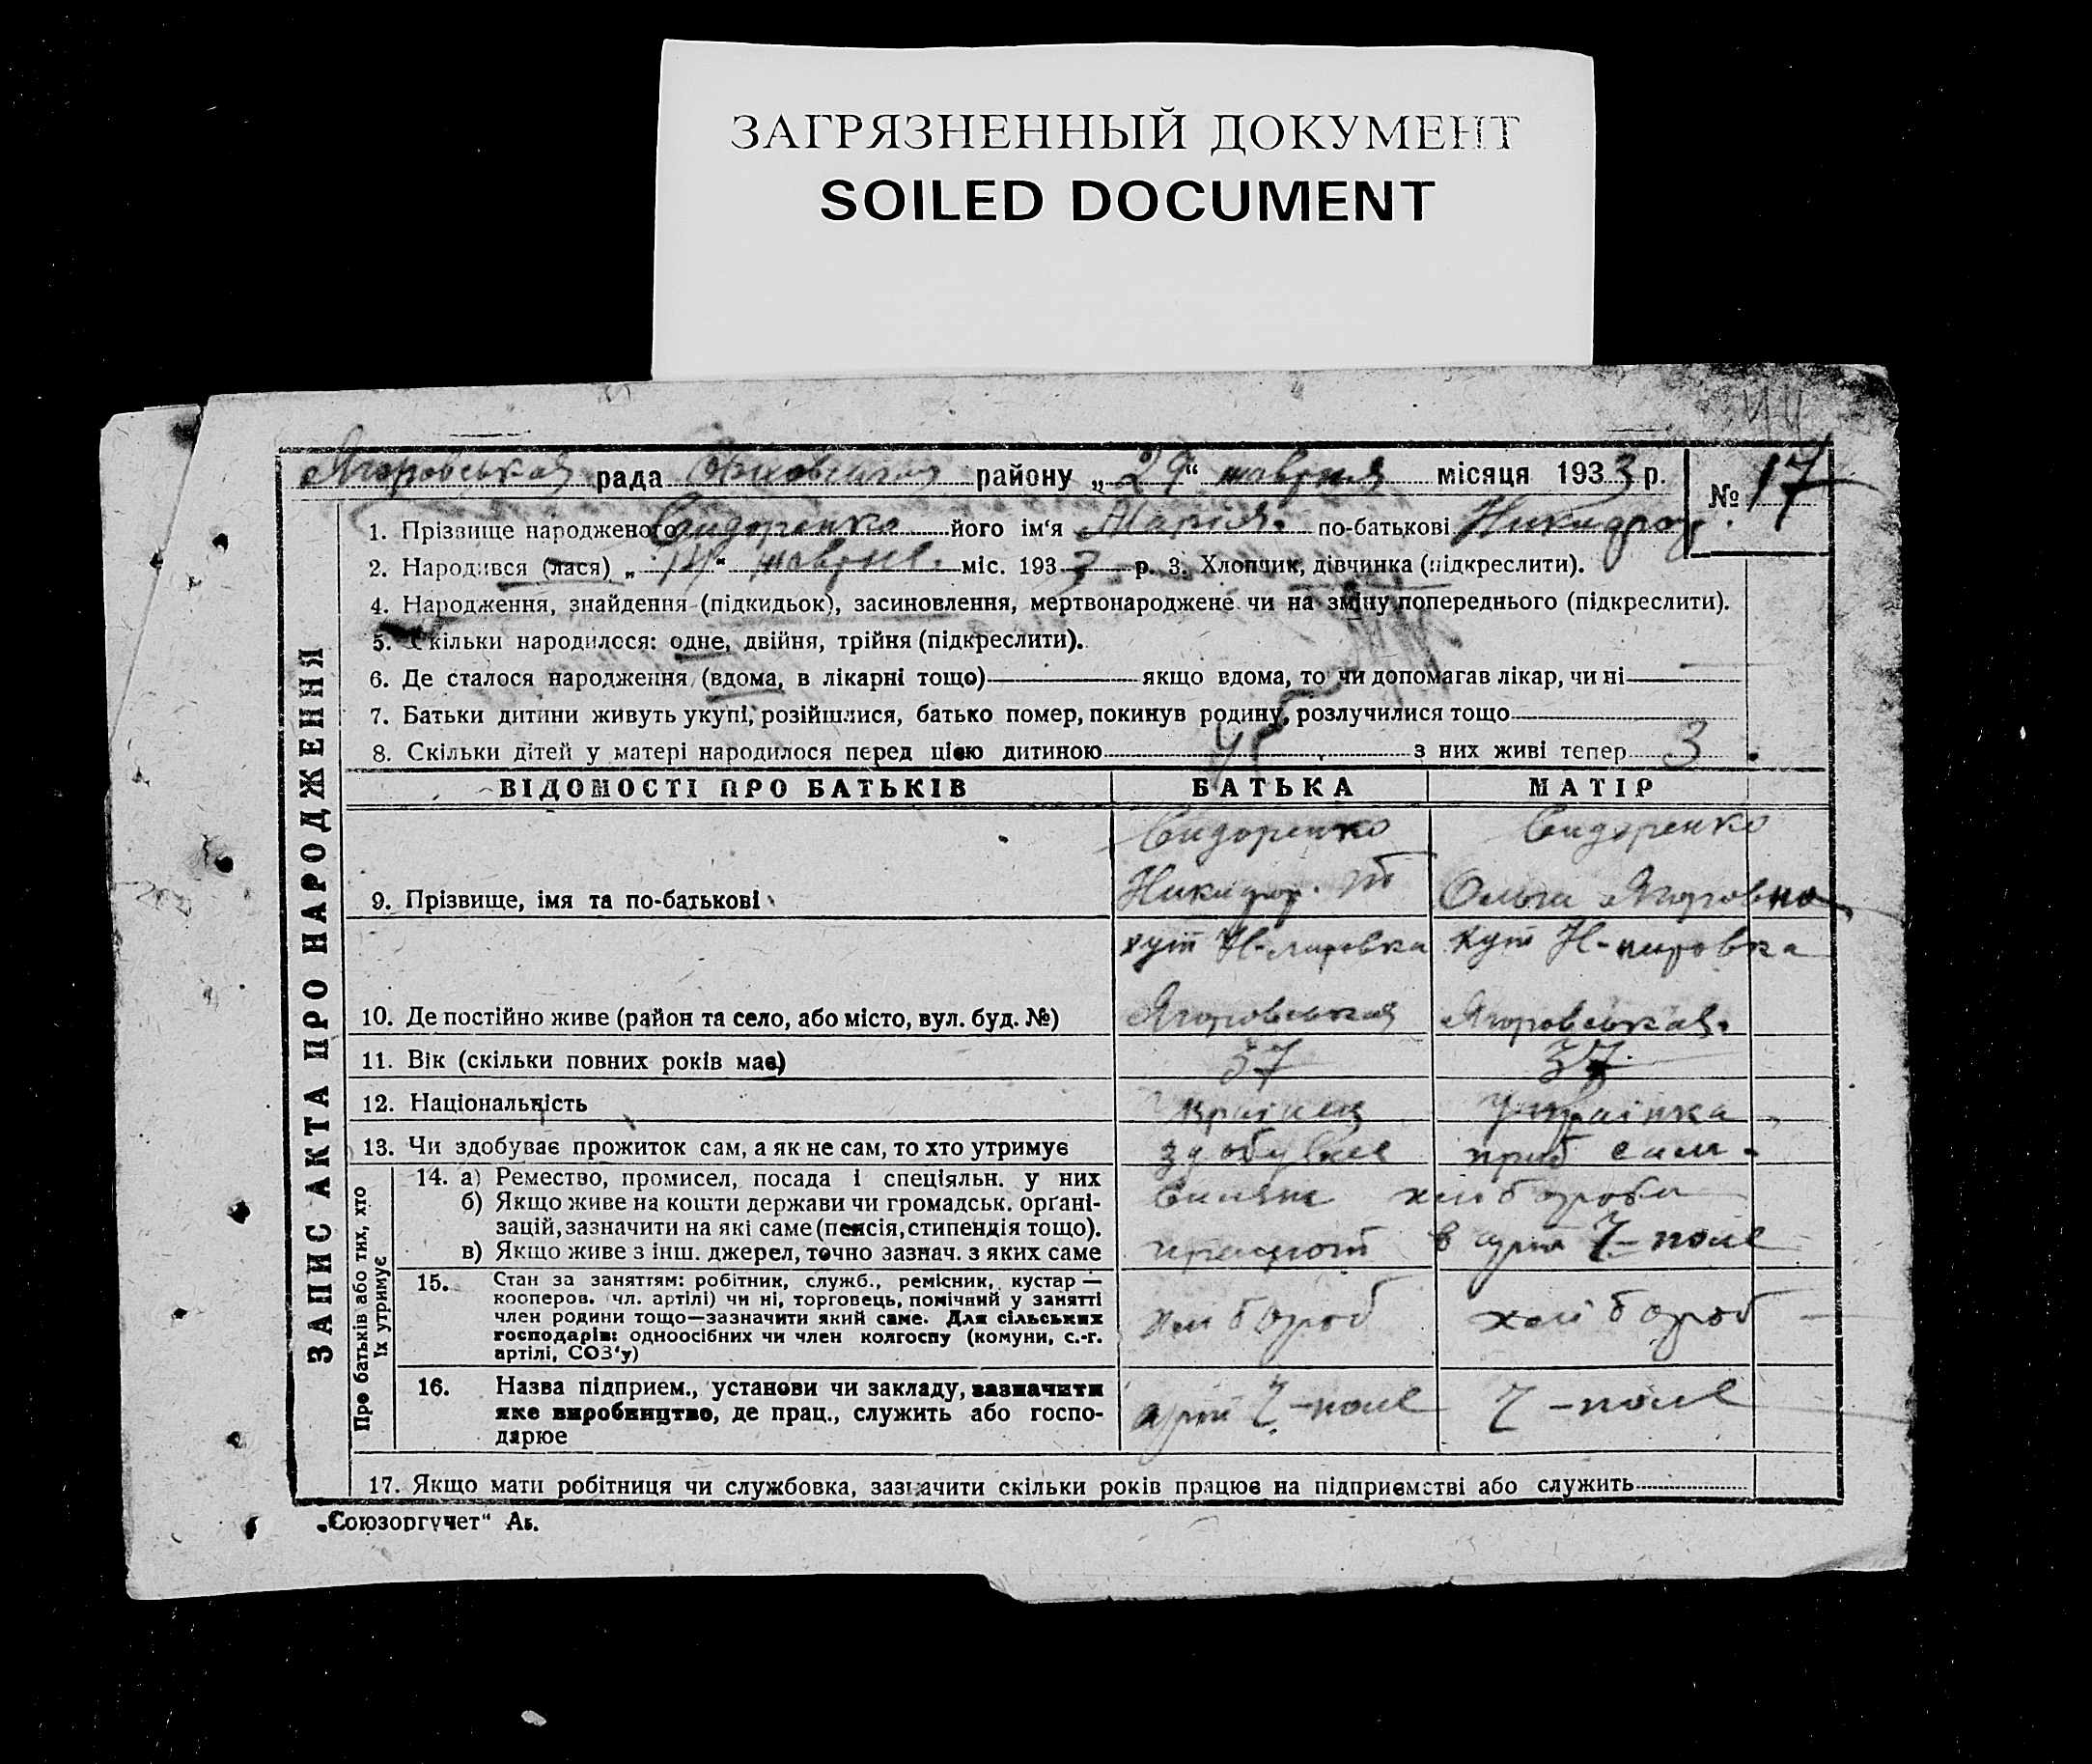 ЗАГРЯЗНЕННЫЙ ДОКУМЕНТ
SOILED DOCUMENT
Ягоровськая рада району „29“ травня місяця 1933 р. № 17
1. Прізвище народженого Сидоренко його ім‘я Марія по-батькові
2. Народився (лася) „ “ травня міс. 1933 р. 3. Хлопчик, дівчинка (підкреслити).
4. Народження, знайдення (підкидьок), засиновлення, мертвонароджене чи на зміну попереднього (підкреслити).
5. Скільки народилося: одне, двійня, трійня (підкреслити).
6. Де сталося народження (вдома, в лікарні тощо) якщо вдома, то чи допомагав лікар, чи ні
7. Батьки дитини живуть укупі, розійшлися, батько помер, покинув родину, розлучилися тощо
8. Скільки дітей у матері народилося перед цією дитиною 4 з них живі тепер 3
ЗАПИС АКТА ПРО НАРОДЖЕННЯ
ВІДОМОСТІ ПРО БАТЬКІВ БАТЬКА МАТІР
Сидоренко Сидоренко
9. Прізвище, імя та по-батькові Никидор. Т Ольга Ягоровна
хут хут
10. Де постійно живе (район та село, або місто, вул. буд. №) Ягоровськая Ягоровськая
11. Вік (скільки повних років має) 37 37
12. Національність Украінец Украінка
13. Чи здобуває прожиток сам, а як не сам, то хто утримує здобувае
Про батьків або тих, хто
їх утримує
14. а) Ремество, промисел, посада і спеціяльн. у них
б) Якщо живе на кошти держави чи громадськ. орґані-
зацій, зазначити на які саме (пенсія, стипендія тощо).
в) Якщо живе з інш. джерел, точно зазнач. з яких саме
15. Стан за заняттям: робітник, служб., ремісник, кустар —
кооперов. чл. артілі) чи ні, торговець, помічний у занятті
член родини тощо—зазначити який саме. Для сільських
господарів: одноосібних чи член колгоспу (комуни, с.-г.
артілі, СОЗ‘у) хлібороб хлібороб
16. Назва підприєм., установи чи закладу, зазначити
яке виробництво, де прац., служить або госпо-
дарює
17. Якщо мати робітниця чи службовка, зазначити скільки років працює на підприємстві або служить
„Союзоргучет“ Аз.